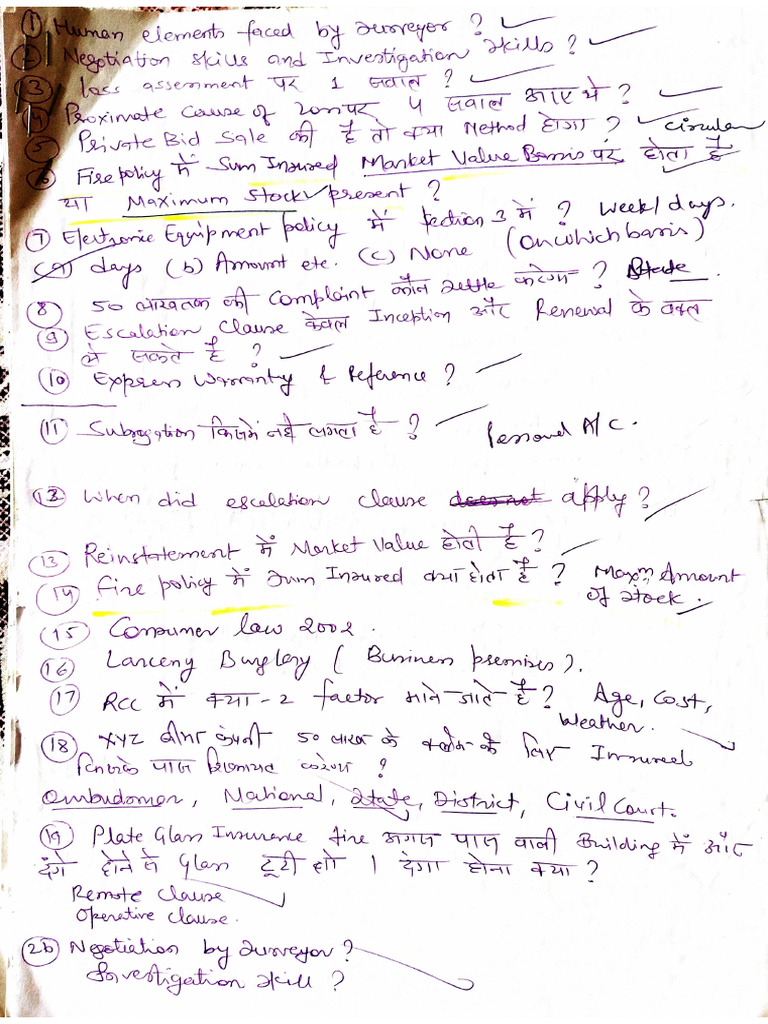 ① Human elements faced by surveyor ?
② Negotiation skills and Investigation skills ?
③ loss assesment पर 1 सवाल ?
④ Proximate Cause of loss पर 4 सवाल आए थे ?
⑤ Private Bid Sale की है तो क्या Method होगा ? Circular
⑥ Fire policy में Sum Insured Market Value Basis पर होता है
या Maximum Stock present ?
⑦ Electronic Equipment policy में Section 3 में ? Week/days.
(a) days (b) Amount etc. (c) None (On which basis)
⑧ 50 लाख तक की Complaint कौन settle करेगा ? State.
⑨ Escalation Clause केवल Inception और Renewal के वक्त
ले सकते है ?
⑩ Express Warranty & Reference ?
⑪ Subrogation किसमें नही लगता है ? Personal A/C.
⑫ When did escalation clause does not apply ?
⑬ Reinstatement में Market Value होती है ?
⑭ Fire policy में Sum Insured क्या होता है ? Maxm Amount
of stock.
⑮ Consumer law 2002.
⑯ Lanceny Burglery ( Business premises ).
⑰ RCC में क्या-2 factor माने जाते है ? Age, Cost,
Weather.
⑱ XYZ बीमा कंपनी 50 लाख के क्लेम के लिए Insured
किसके पास शिकायत करेगा ?
Ombudsman, National, State, District, Civil Court.
⑲ Plate Glass Insurance fire अगल पास वाली Building में और
दंगे होने से Glass टूटी तो 1 देगा होना क्या ?
Remote Clause
Operative Clause.
Negotiation by surveyor ?
Investigation skill ?